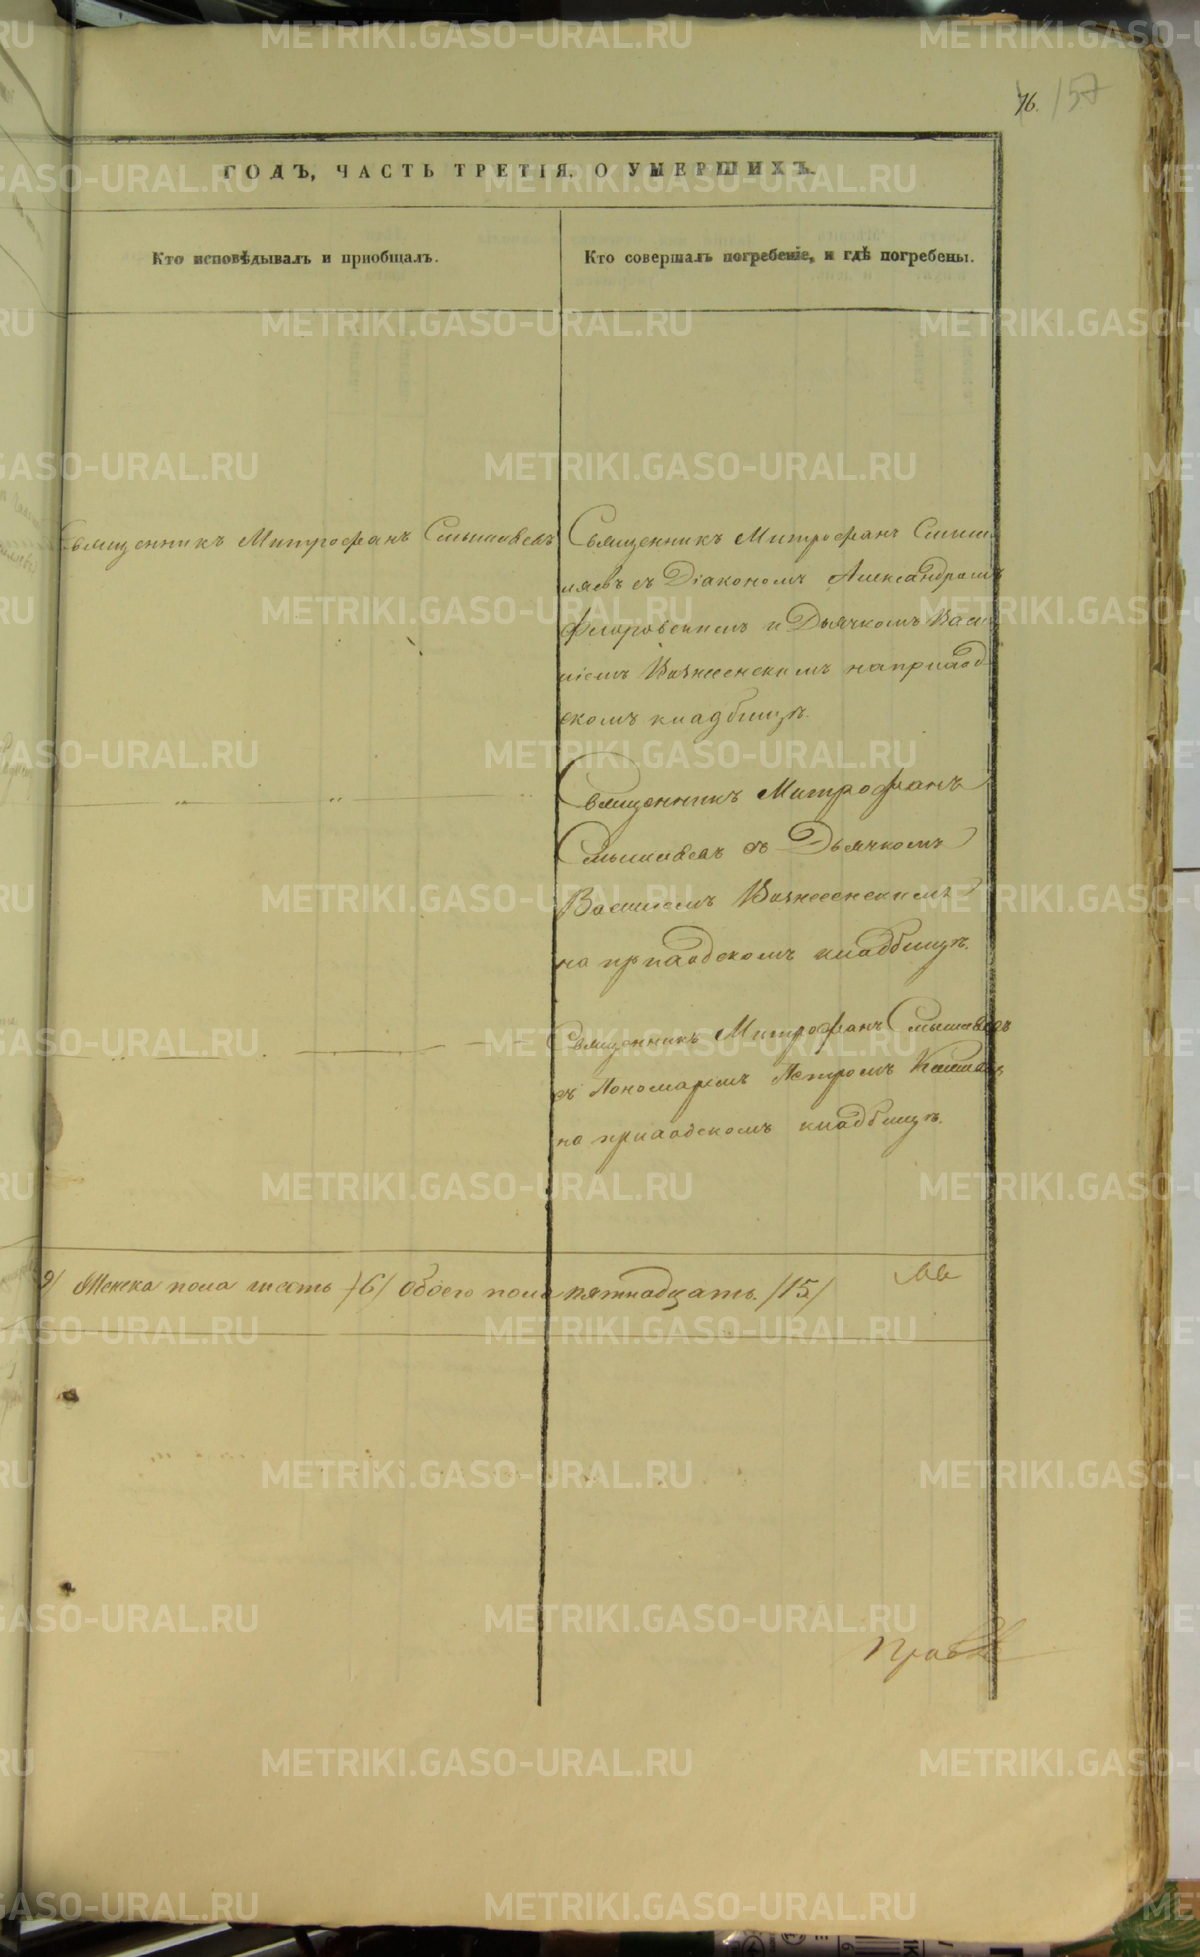 76. 157
ГОДЪ, ЧАСТЬ ТРЕТІЯ, О УМЕРШИХЪ.
Кто исповѣдывалъ и пріобщалъ.
Кто совершалъ погребеніе, и гдѣ погребены.
Священникъ Митрофанъ Смышляевъ
Священникъ Митрофанъ Смыш
ляевъ съ Діакономъ Александромъ
и Дьячкомъ Васи
ліемъ Вознесенскимъ на приход
скомъ кладбищѣ.
Священникъ Митрофанъ
Смышляевъ съ Дьячкомъ
Василіемъ Вознесенскимъ
на приходскомъ кладбищѣ.
Священникъ Митрофанъ Смышляевъ
съ Пономаремъ Петромъ
на приходскомъ кладбищѣ.
9/ Женска пола шесть /6/ обоего пола пятнадцать. /15/
METRIKI.GASO-URAL.RU